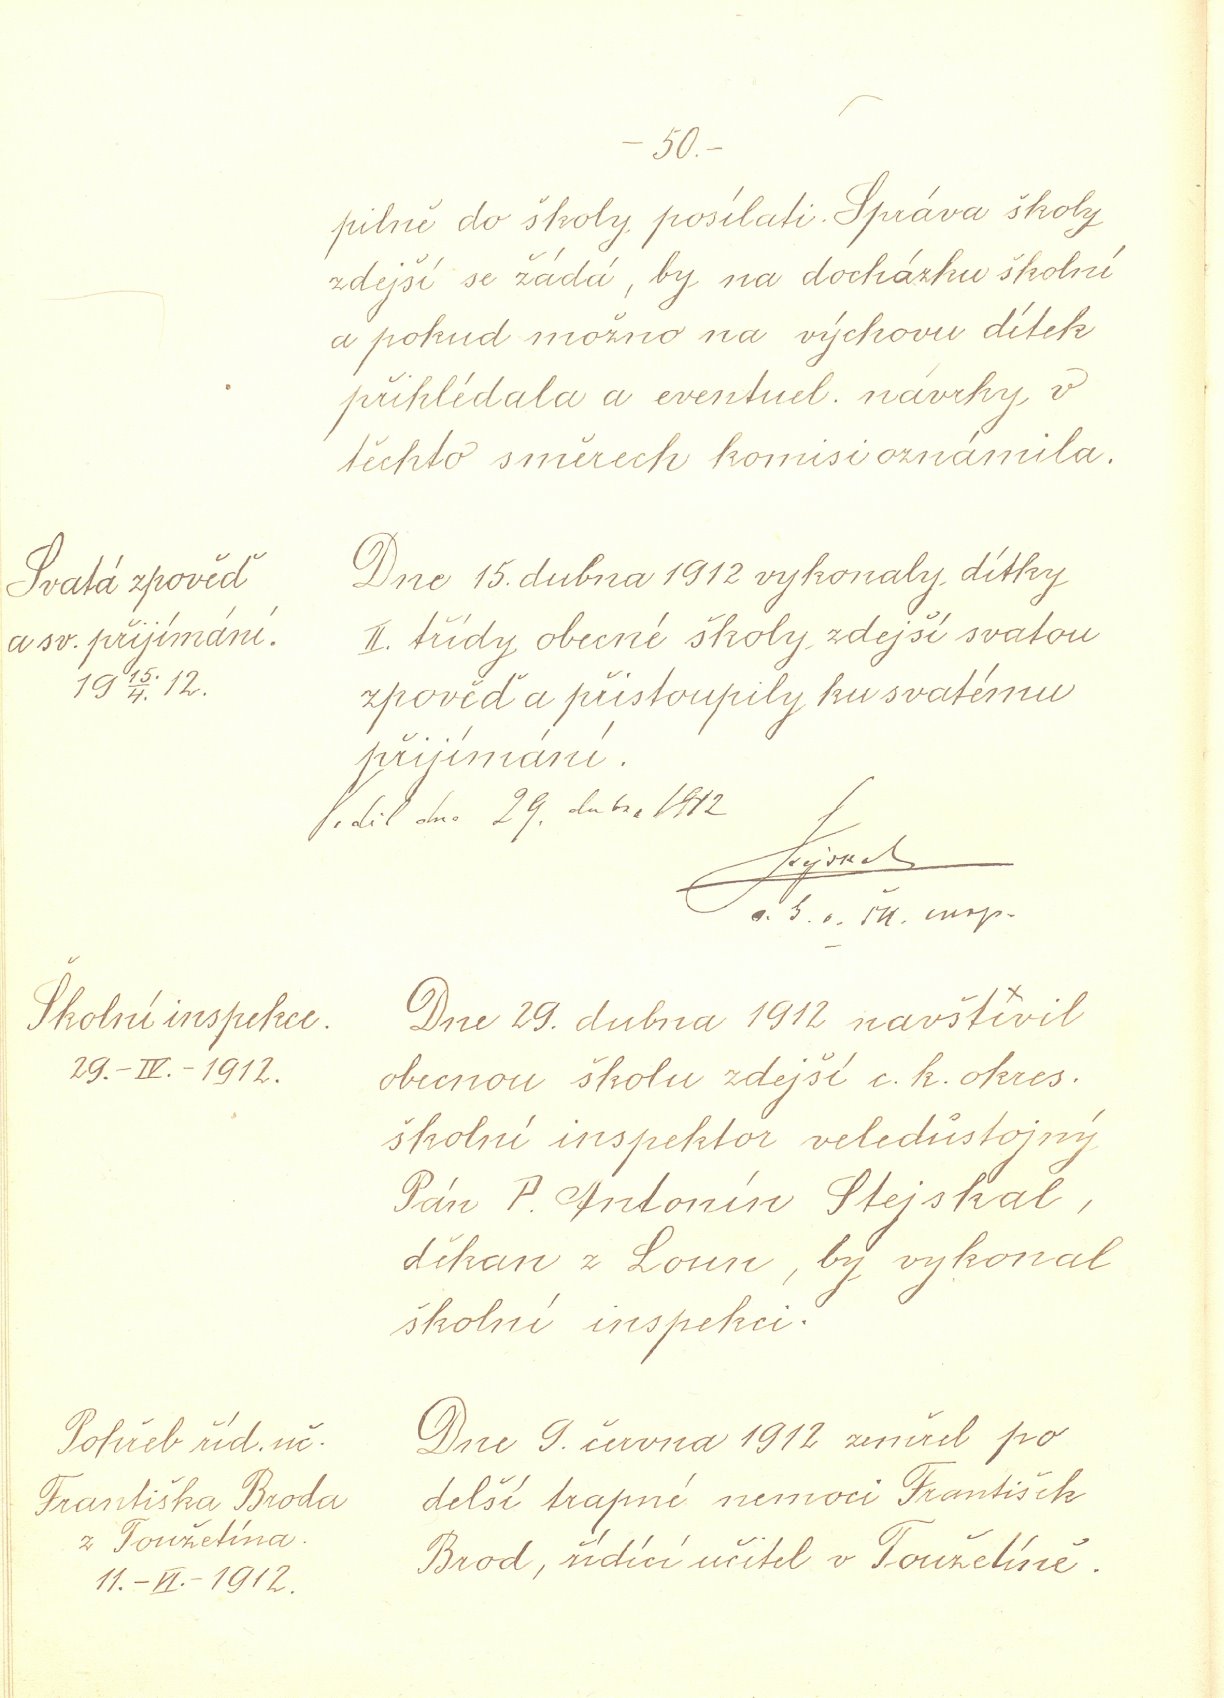 – 50. –
pilně do školy posílati. Správa školy
zdejší se žádá, by na docházku školní
a pokud možno na výchovu dítek
přihlédala a eventuel. návrhy v
těchto směrech komisi oznámila.
Svatá zpověď
a sv. přijímání.
19 15./4. 12.
Dne 15. dubna 1912 vykonaly dítky
II. třídy obecné školy zdejší svatou
zpověď a přistoupily ku svatému
přijímání.
dne 29. dubna 1912
Stejskal
šk. insp.
Školní inspekce.
29. – IV. – 1912.
Dne 29. dubna 1912 navštívil
obecnou školu zdejší c. k. okres.
školní inspektor veledůstojný
Pán P. Antonín Stejskal,
děkan z Loun, by vykonal
školní inspekci.
Pohřeb říd. uč.
Františka Broda
z Toužetína.
11. – VI. – 1912.
Dne 9. června 1912 zemřel po
delší trapné nemoci František
Brod, řídící učitel v Toužetíně.